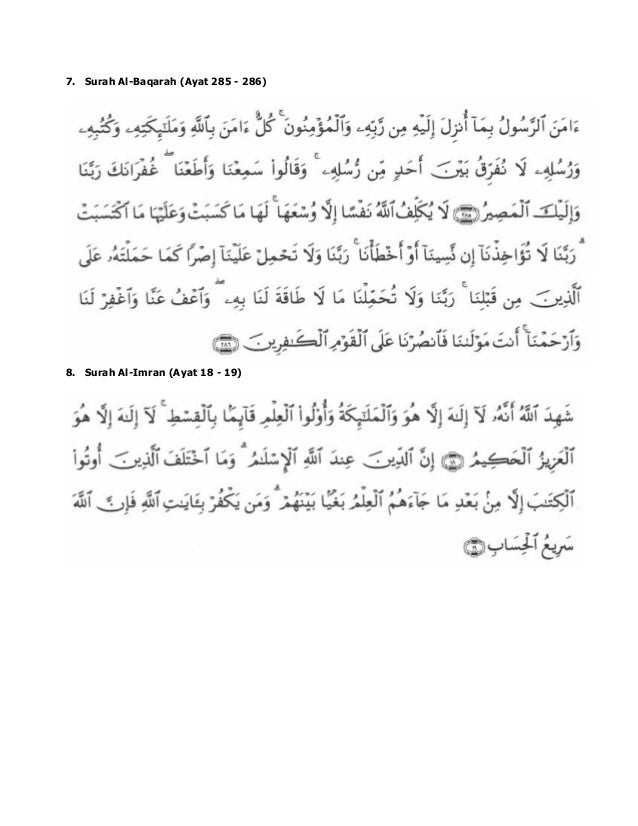 7. Surah Al-Baqarah (Ayat 285 - 286)
ءَامَنَ ٱلرَّسُولُ بِمَآ أُنزِلَ إِلَيْهِ مِن رَّبِّهِۦ وَٱلْمُؤْمِنُونَ ۚ كُلٌّ ءَامَنَ بِٱللَّهِ وَمَلَـٰٓئِكَتِهِۦ وَكُتُبِهِۦ
وَرُسُلِهِۦ لَا نُفَرِّقُ بَيْنَ أَحَدٍ مِّن رُّسُلِهِۦ ۚ وَقَالُوا۟ سَمِعْنَا وَأَطَعْنَا ۖ غُفْرَانَكَ رَبَّنَا
وَإِلَيْكَ ٱلْمَصِيرُ ﴿٢٨٥﴾ لَا يُكَلِّفُ ٱللَّهُ نَفْسًا إِلَّا وُسْعَهَا ۚ لَهَا مَا كَسَبَتْ وَعَلَيْهَا مَا ٱكْتَسَبَتْ
ۗ رَبَّنَا لَا تُؤَاخِذْنَآ إِن نَّسِينَآ أَوْ أَخْطَأْنَا ۚ رَبَّنَا وَلَا تَحْمِلْ عَلَيْنَآ إِصْرًا كَمَا حَمَلْتَهُۥ عَلَى
ٱلَّذِينَ مِن قَبْلِنَا ۚ رَبَّنَا وَلَا تُحَمِّلْنَا مَا لَا طَاقَةَ لَنَا بِهِۦ ۖ وَٱعْفُ عَنَّا وَٱغْفِرْ لَنَا
وَٱرْحَمْنَآ ۚ أَنتَ مَوْلَىٰنَا فَٱنصُرْنَا عَلَى ٱلْقَوْمِ ٱلْكَـٰفِرِينَ ﴿٢٨٦﴾
8. Surah Al-Imran (Ayat 18 - 19)
شَهِدَ ٱللَّهُ أَنَّهُۥ لَآ إِلَـٰهَ إِلَّا هُوَ وَٱلْمَلَـٰٓئِكَةُ وَأُو۟لُوا۟ ٱلْعِلْمِ قَآئِمًۢا بِٱلْقِسْطِ ۚ لَآ إِلَـٰهَ إِلَّا هُوَ
ٱلْعَزِيزُ ٱلْحَكِيمُ ﴿١٨﴾ إِنَّ ٱلدِّينَ عِندَ ٱللَّهِ ٱلْإِسْلَـٰمُ ۗ وَمَا ٱخْتَلَفَ ٱلَّذِينَ أُوتُوا۟
ٱلْكِتَـٰبَ إِلَّا مِنۢ بَعْدِ مَا جَآءَهُمُ ٱلْعِلْمُ بَغْيًۢا بَيْنَهُمْ ۗ وَمَن يَكْفُرْ بِـَٔايَـٰتِ ٱللَّهِ فَإِنَّ ٱللَّهَ
سَرِيعُ ٱلْحِسَابِ ﴿١٩﴾